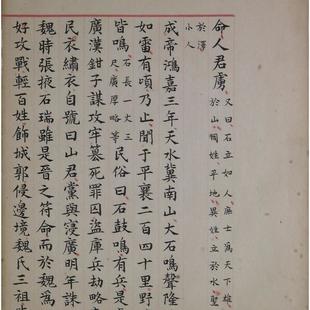 命人君虜又曰石立如人庶士為天下雄
於山同姓平地異姓立於水聖
於澤
小人
成帝鴻嘉三年天水冀南山大石鳴聲隆
如雷有頃乃止聞于平襄二百四十里野
皆鳴石長一丈三尺廣厚略等民俗曰石鼓鳴有兵是
廣漢鉗子謀攻牢篡死罪囚盜庫兵劫略
民衣繡衣自號曰山君黨與寖廣明年誅
魏時張掖石瑞雖是晉之符命而於魏為
好攻戰輕百姓飾城郭侵邊境魏氏三祖